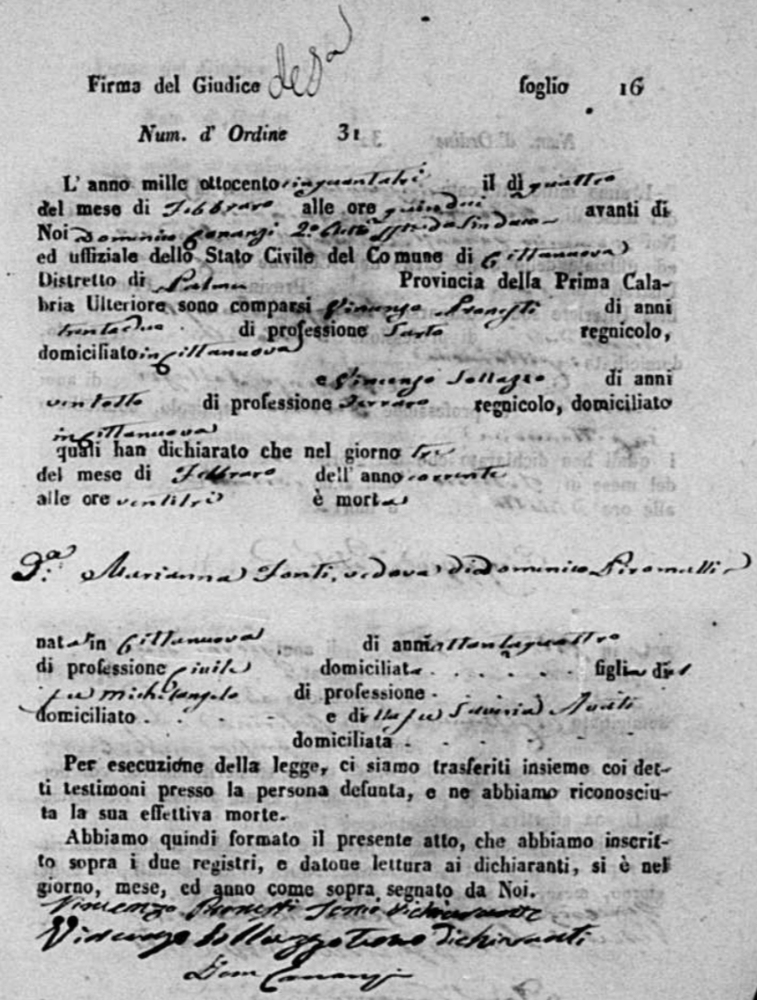 Firma del Giudice foglio 16
Num. d' Ordine 31
L' anno mille ottocento cinquantatrè il dì quattro
del mese di Febbraro alle ore quindici avanti di
Noi Domenico 2.° Sindaco
ed uffiziale dello Stato Civile del Comune di Cittanuova
Distretto di Palme Provincia della Prima Cala-
bria Ulteriore sono comparsi Vincenzo Pronestì di anni
trentadue di professione Sarto regnicolo,
domiciliato in Cittanuova
e Vincenzo Sollazzo di anni
ventotto di professione Ferraro regnicolo, domiciliato
in Cittanuova
quali han dichiarato che nel giorno tre
del mese di Febbraro dell' anno corrente
alle ore ventitrè è morta
D.a Marianna Fonti, vedova di Domenico Piromalli
nata in Cittanuova di anni ottantaquattro
di professione civile domiciliata . . . . . figlia del
fu Michelangelo di professione .
domiciliato . . . . e della fu Saveria Avati
domiciliata . . . . .
Per esecuzione della legge, ci siamo trasferiti insieme coi det-
ti testimoni presso la persona defunta, e ne abbiamo riconosciu-
ta la sua effettiva morte.
Abbiamo quindi formato il presente atto, che abbiamo inscrit-
to sopra i due registri, e datone lettura ai dichiaranti, si è nel
giorno, mese, ed anno come sopra segnato da Noi.
Vincenzo Pronestì dichiarante
Vincenzo Sollazzo dichiaranti
Dom